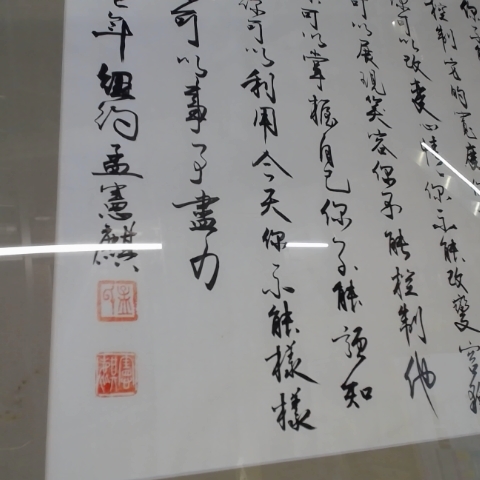 控制它的寬度
可以改變心情你不能改變容
可以展現笑容你不能控制他
可以掌握自己你不能預知
可以利用今天你不能樣樣
可以事事盡力
年紐約孟憲麒